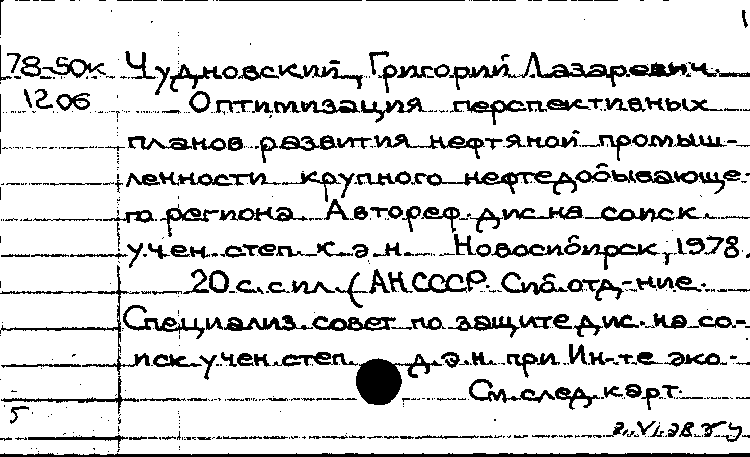 1
78-50к Чудновский, Григорий Лазаревич.
1206 Оптимизация перспективных
планов развития нефтяной промыш-
ленности крупного нефтедобывающе-
го региона. Автореф. дис. на соиск.
учен. степ. к.э.н. Новосибирск, 1978.
20 с. с ил. (АН СССР. Сиб. отд-ние.
Специализ. совет по защите дис. на со-
иск. учен. степ. д.э.н. при Ин-те эко-
См. след. карт.
5